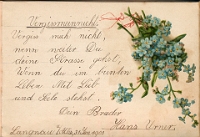 Vergissmeinnicht.
Vergiss mich nicht,
wenn weiter Du
deine Strasse gehst,
Wenn du im bunten
Leben Mit Lust
und Leid stehst.
Dein Bruder
Hans
Langnau